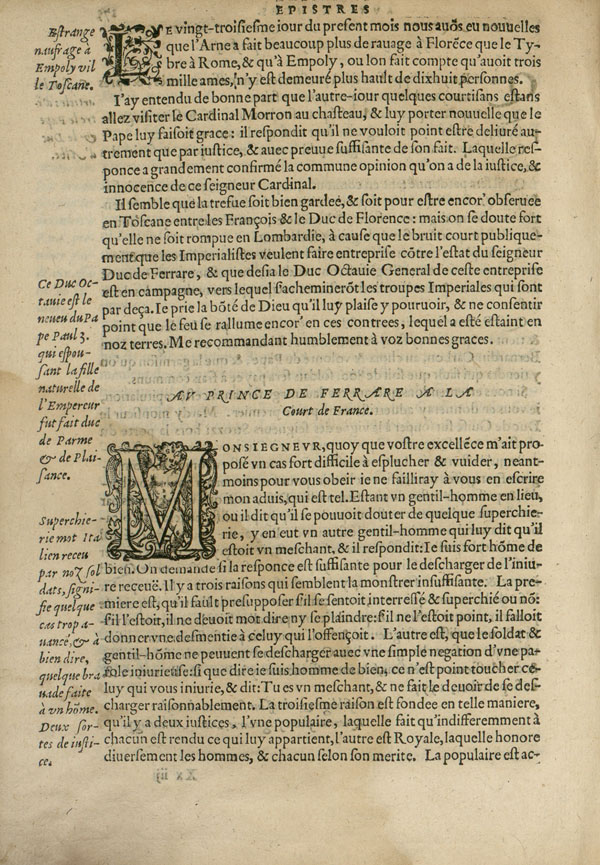 EPISTRES
Estrange
naufrage à
Empoly vil
le Toscane.
LE vingt-troisiesme iour du present mois nous auõs eu nouuelles
que l'Arne a fait beaucoup plus de rauage à Florẽce que le Ty-
bre à Rome, & qu'à Empoly, ou lon fait compte qu'auoit trois
mille ames, n'y est demeuré plus hault de dixhuit personnes.
I'ay entendu de bonne part que l'autre-iour quelques courtisans estans
allez visiter le Cardinal Morron au chasteau, & luy porter nouuelle que le
Pape luy faisoit grace: il respondit qu'il ne vouloit point estre deliuré au-
trement que par iustice, & auec preuue suffisante de son fait. Laquelle res-
ponce a grandement confirmé la commune opinion qu'on a de la iustice, &
innocence de ce seigneur Cardinal.
Il semble que la trefue soit bien gardee, & soit pour estre encor' obseruee
en Toscane entre les François & le Duc de Florence: mais on se doute fort
qu'elle ne soit rompue en Lombardie, à cause que le bruit court publique-
ment que les Imperialistes veulent faire entreprise cõtre l'estat du seigneur
Duc de Ferrare, & que desia le Duc Octauie General de ceste entreprise
est en campagne, vers lequel s'achemineröt les troupes Imperiales qui sont
par deça. Ie prie la bõté de Dieu qu'il luy plaise y pouruoir, & ne consentir
point que le feu se rallume encor' en ces contrees, lequel a esté estaint en
noz terres. Me recommandant humblement à voz bonnes graces.
Ce Duc Oc-
tauie est le
neueu du Pa
pe Paul 3.
qui espou-
sant la fille
naturelle de
l'Empereur
fut fait duc
de Parme
& de Plai-
sance.
AV PRINCE DE FERRARE A LA
Court de France.
MONSIEGNEVR, quoy que vostre excellẽce m'ait pro-
posé vn cas fort difficile à esplucher & vuider, neant-
moins pour vous obeir ie ne failliray à vous en escrire
mon aduis, qui est tel. Estant vn gentil-homme en lieu,
ou il dit qu'il se pouuoit douter de quelque superchie-
rie, y en eut vn autre gentil-homme qui luy dit qu'il
estoit vn meschant, & il respondit: Ie suis fort hõme de
bien. On demande si la responce est suffisante pour le descharger de l'iniu-
re receuë. Il y a trois raisons qui semblent la monstrer insuffisante. La pre-
miere est, qu'il fault presupposer s'il se sentoit interressé & superchié ou nõ:
s'il l'estoit, il ne deuoit mot dire ny se plaindre: s'il ne l'estoit point, il falloit
donner vne desmentie à celuy qui l'offençoit. L'autre est, que le soldat &
gentil-hõme ne peuuent se descharger auec vne simple negation d'vne pa-
role iniurieuse: si que dire ie suis homme de bien, ce n'est point toucher ce-
luy qui vous iniurie, & dit: Tu es vn meschant, & ne fait le deuoir de se des-
charger raisonnablement. La troisiesme raison est fondee en telle maniere,
qu'il y a deux iustices, l'vne populaire, laquelle fait qu'indifferemment à
chacun est rendu ce qui luy appartient, l'autre est Royale, laquelle honore
diuersement les hommes, & chacun selon son merite. La populaire est ac-
Superchie-
rie mot Ita
lien receu
par noz sol
dats, signi-
fie quelque
cas trop a-
uancé, & à
bien dire,
quelque bra
uade faite
à vn hõme.
Deux sor-
tes de iusti-
ce.